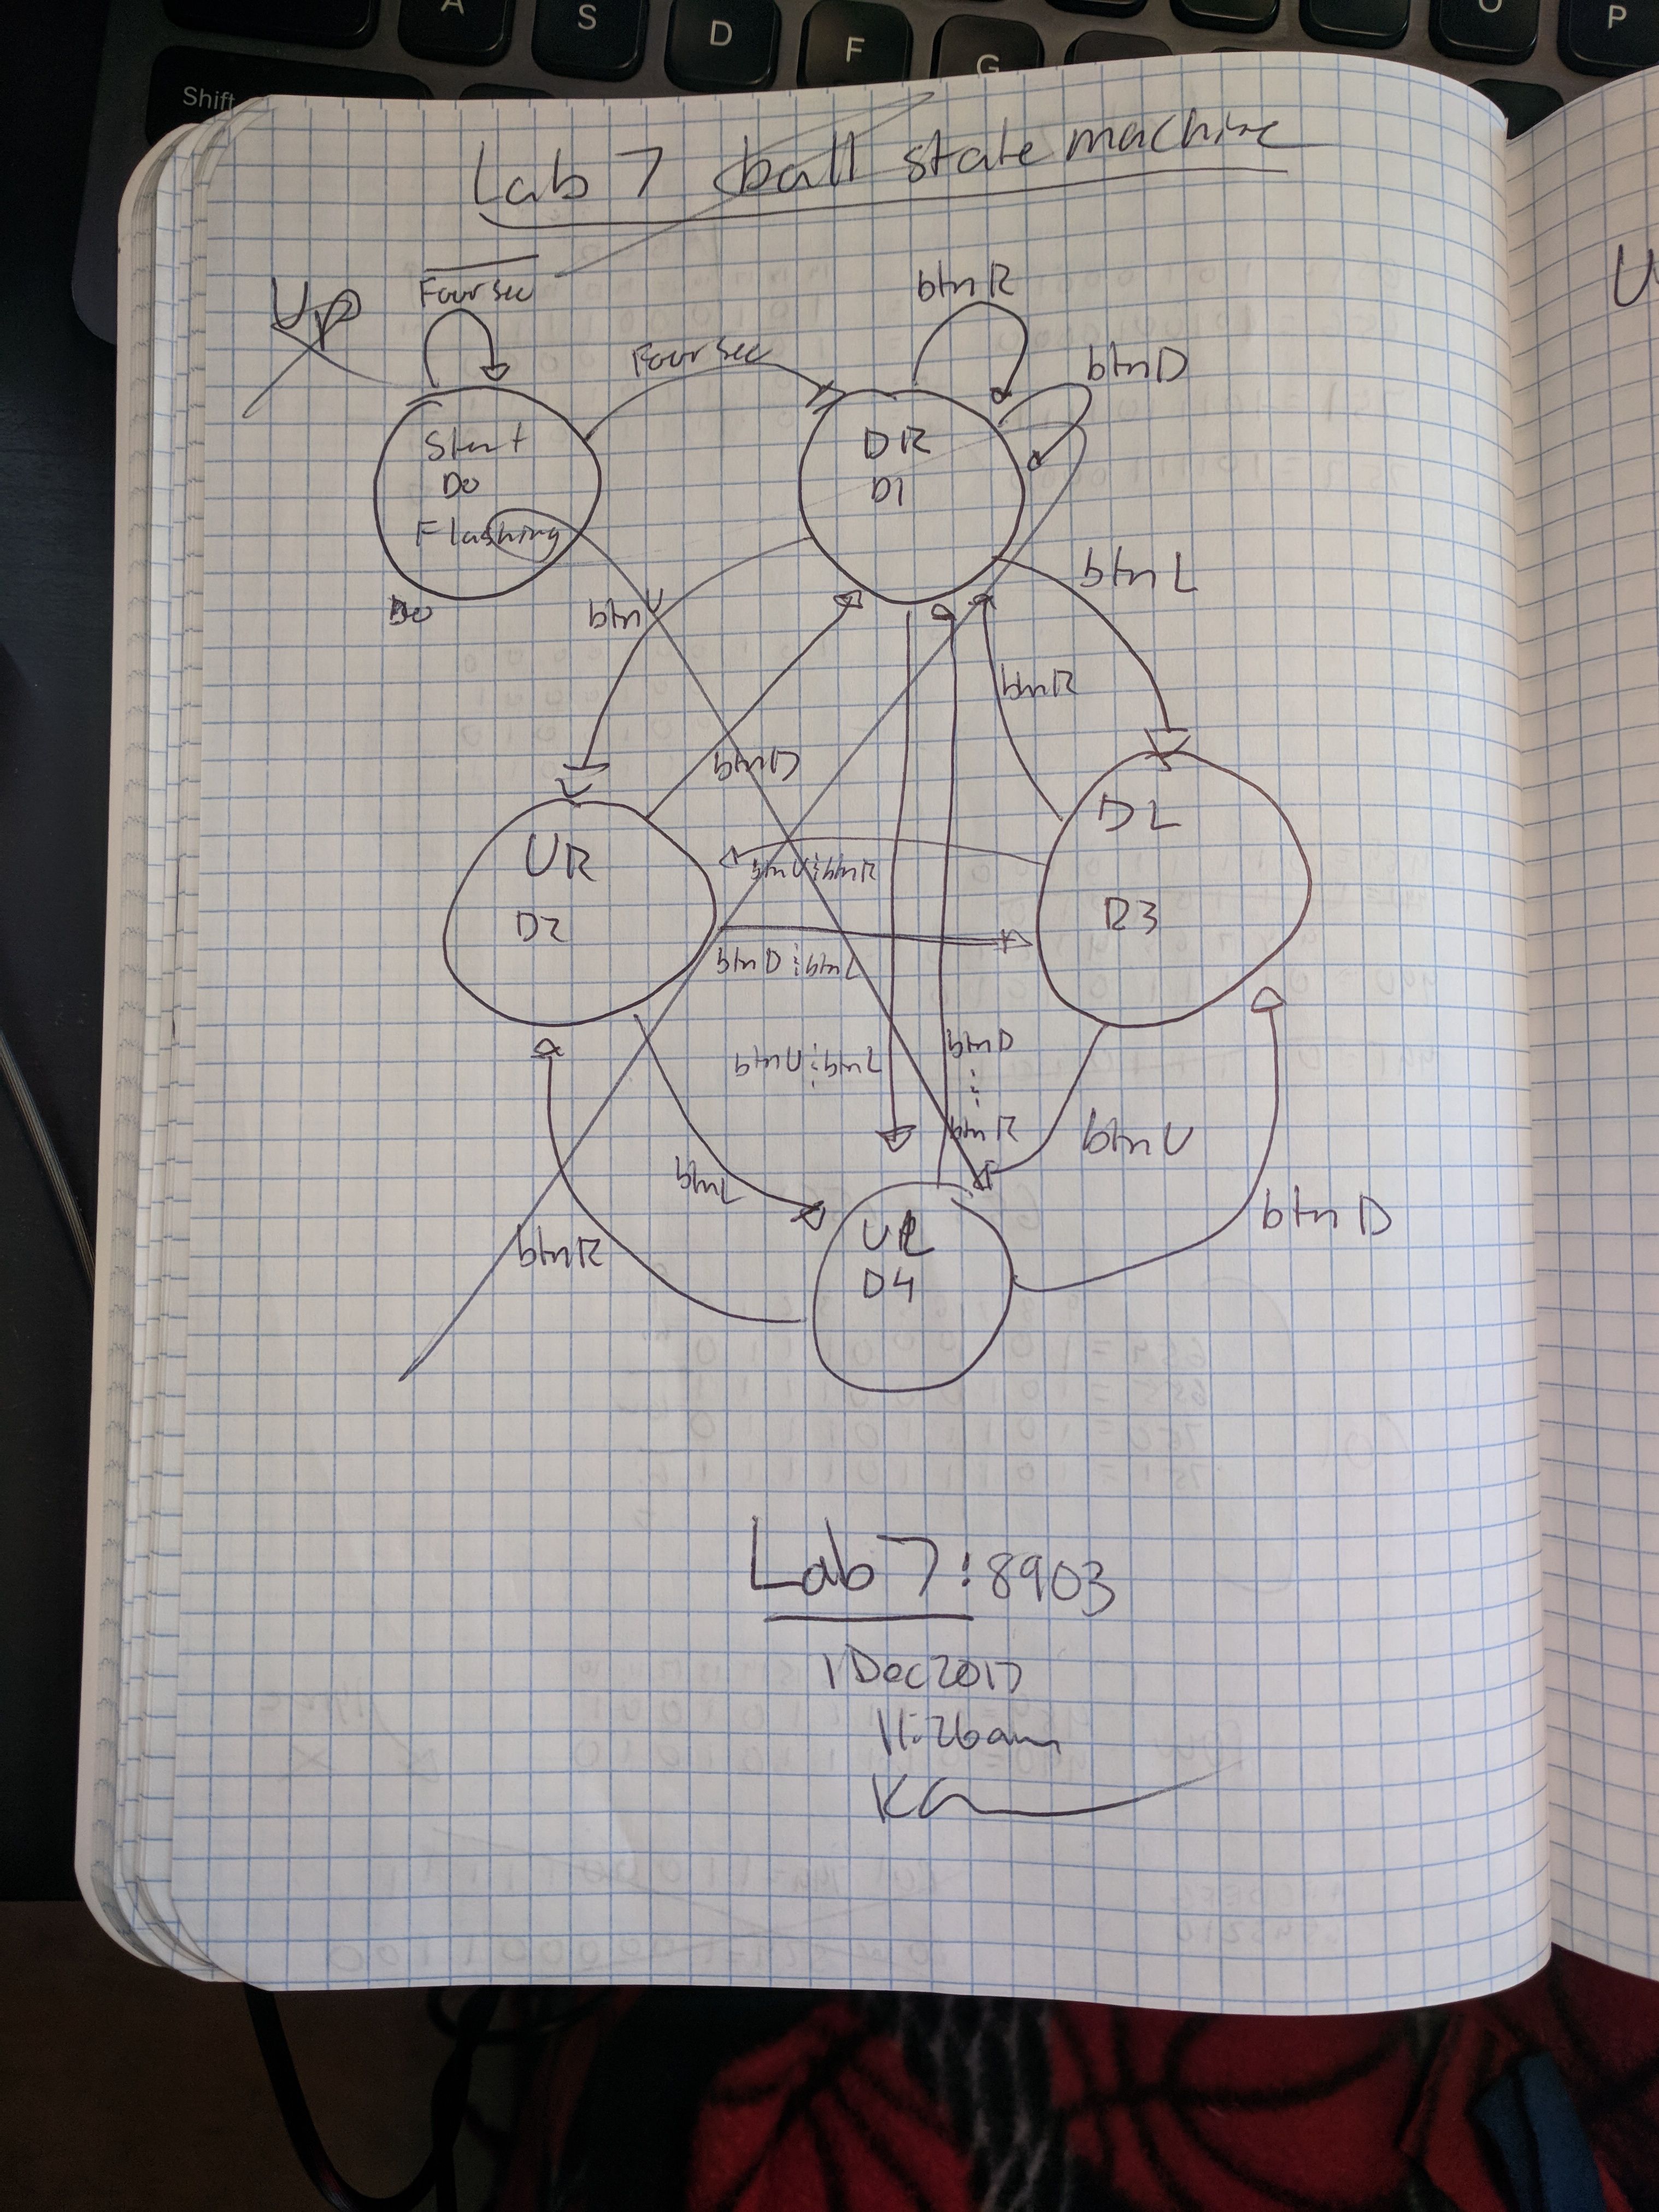 A S D F G O P
Shift
Lab 7 ball state machine
U
Up
Foursec
btnR
Foursec
btnD
Start
D0
Flashing
D0
DR
D1
btnU
btnL
btnR
btnD
UR
D2
DL
D3
btnU btnR
btnD btnL
btnU btnL
btnD
btnR
btnU
btnL
btnR
btnD
UL
D4
Lab 7: 8903
1 Dec 2017
11:26am